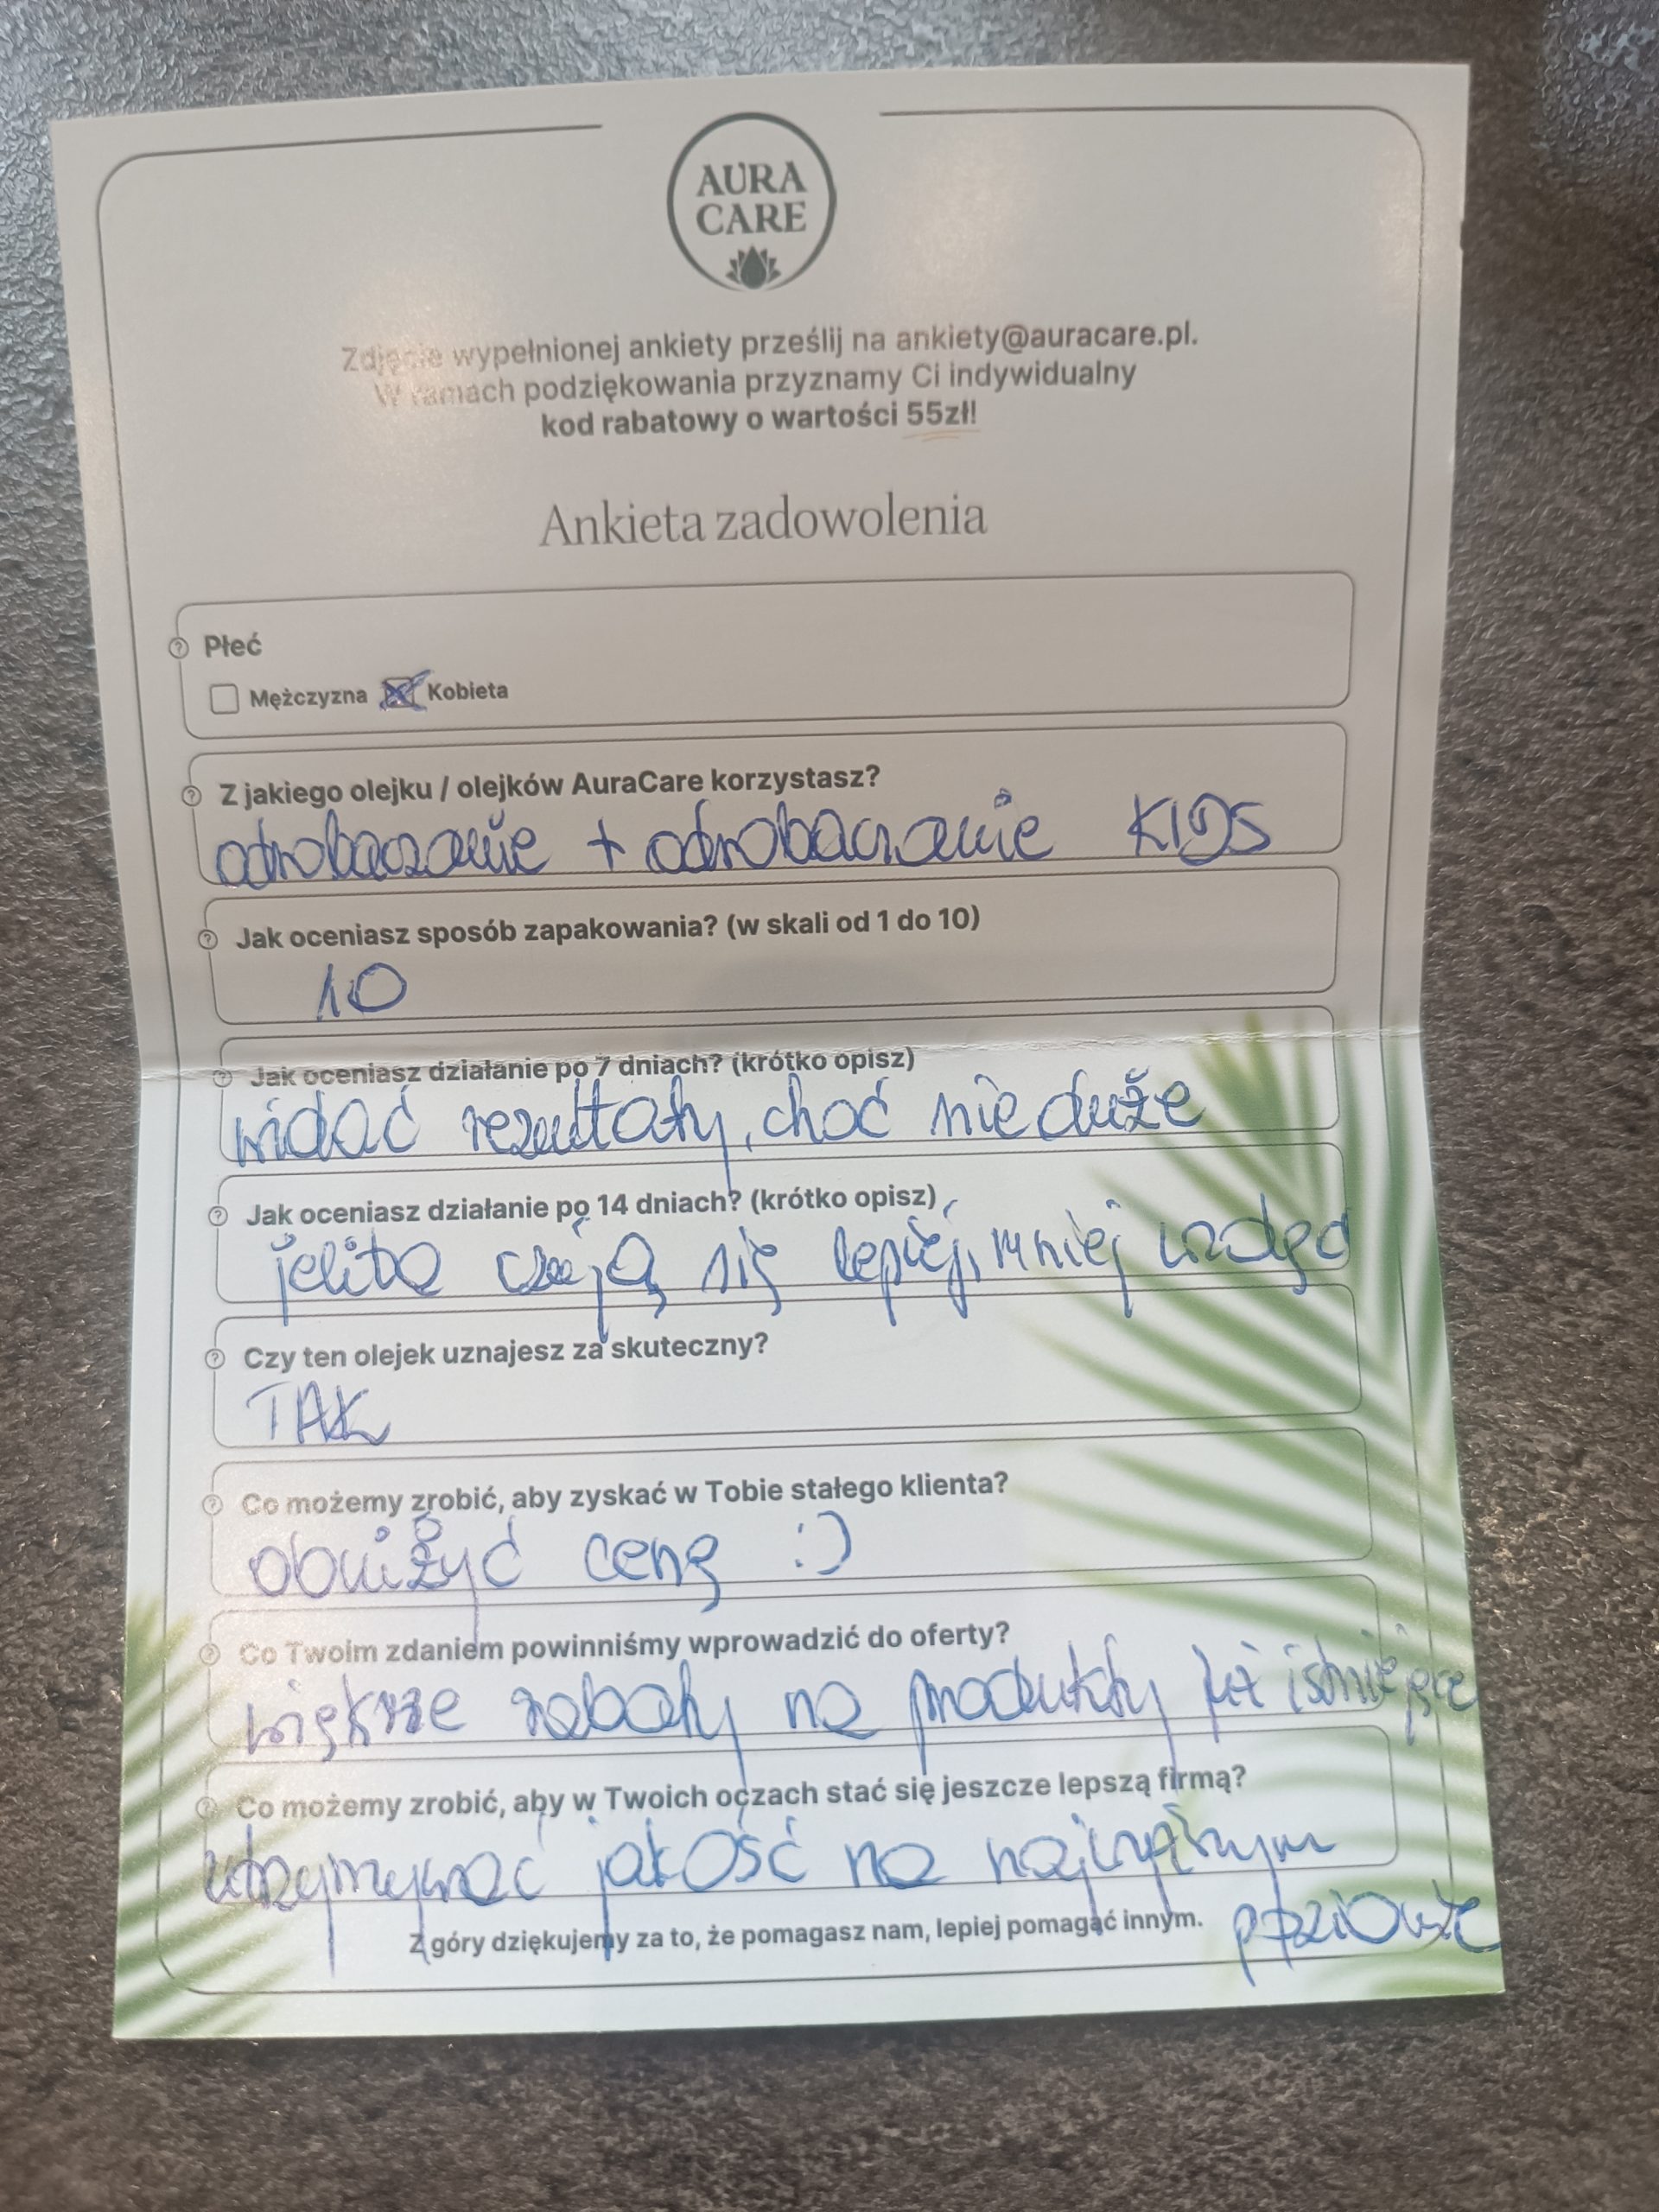 AURA
CARE
Zdjęcie wypełnionej ankiety prześlij na ankiety@auracare.pl.
W ramach podziękowania przyznamy Ci indywidualny
kod rabatowy o wartości 55zł!
Ankieta zadowolenia
Płeć
Mężczyzna Kobieta
Z jakiego olejku / olejków AuraCare korzystasz?
odrobaczanie + odrobaczanie KIDS
Jak oceniasz sposób zapakowania? (w skali od 1 do 10)
10
Jak oceniasz działanie po 7 dniach? (krótko opisz)
widać rezultaty, choć nie duże
Jak oceniasz działanie po 14 dniach? (krótko opisz)
jelita czują się lepiej, mniej wzdęć
Czy ten olejek uznajesz za skuteczny?
TAK
Co możemy zrobić, aby zyskać w Tobie stałego klienta?
obniżyć cenę :)
Co Twoim zdaniem powinniśmy wprowadzić do oferty?
większe rabaty na produkty już istniejące
Co możemy zrobić, aby w Twoich oczach stać się jeszcze lepszą firmą?
utrzymywać jakość na najwyższym
poziomie
Z góry dziękujemy za to, że pomagasz nam, lepiej pomagać innym.